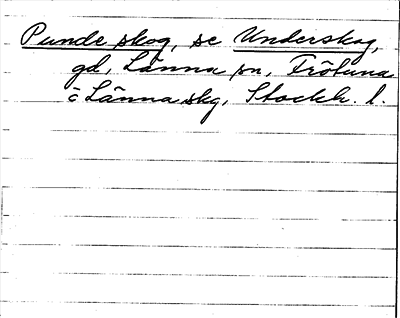 Punde skog, se Underskog,
gd, Länna sn, Frötuna
o Länna skg, Stockh. l.